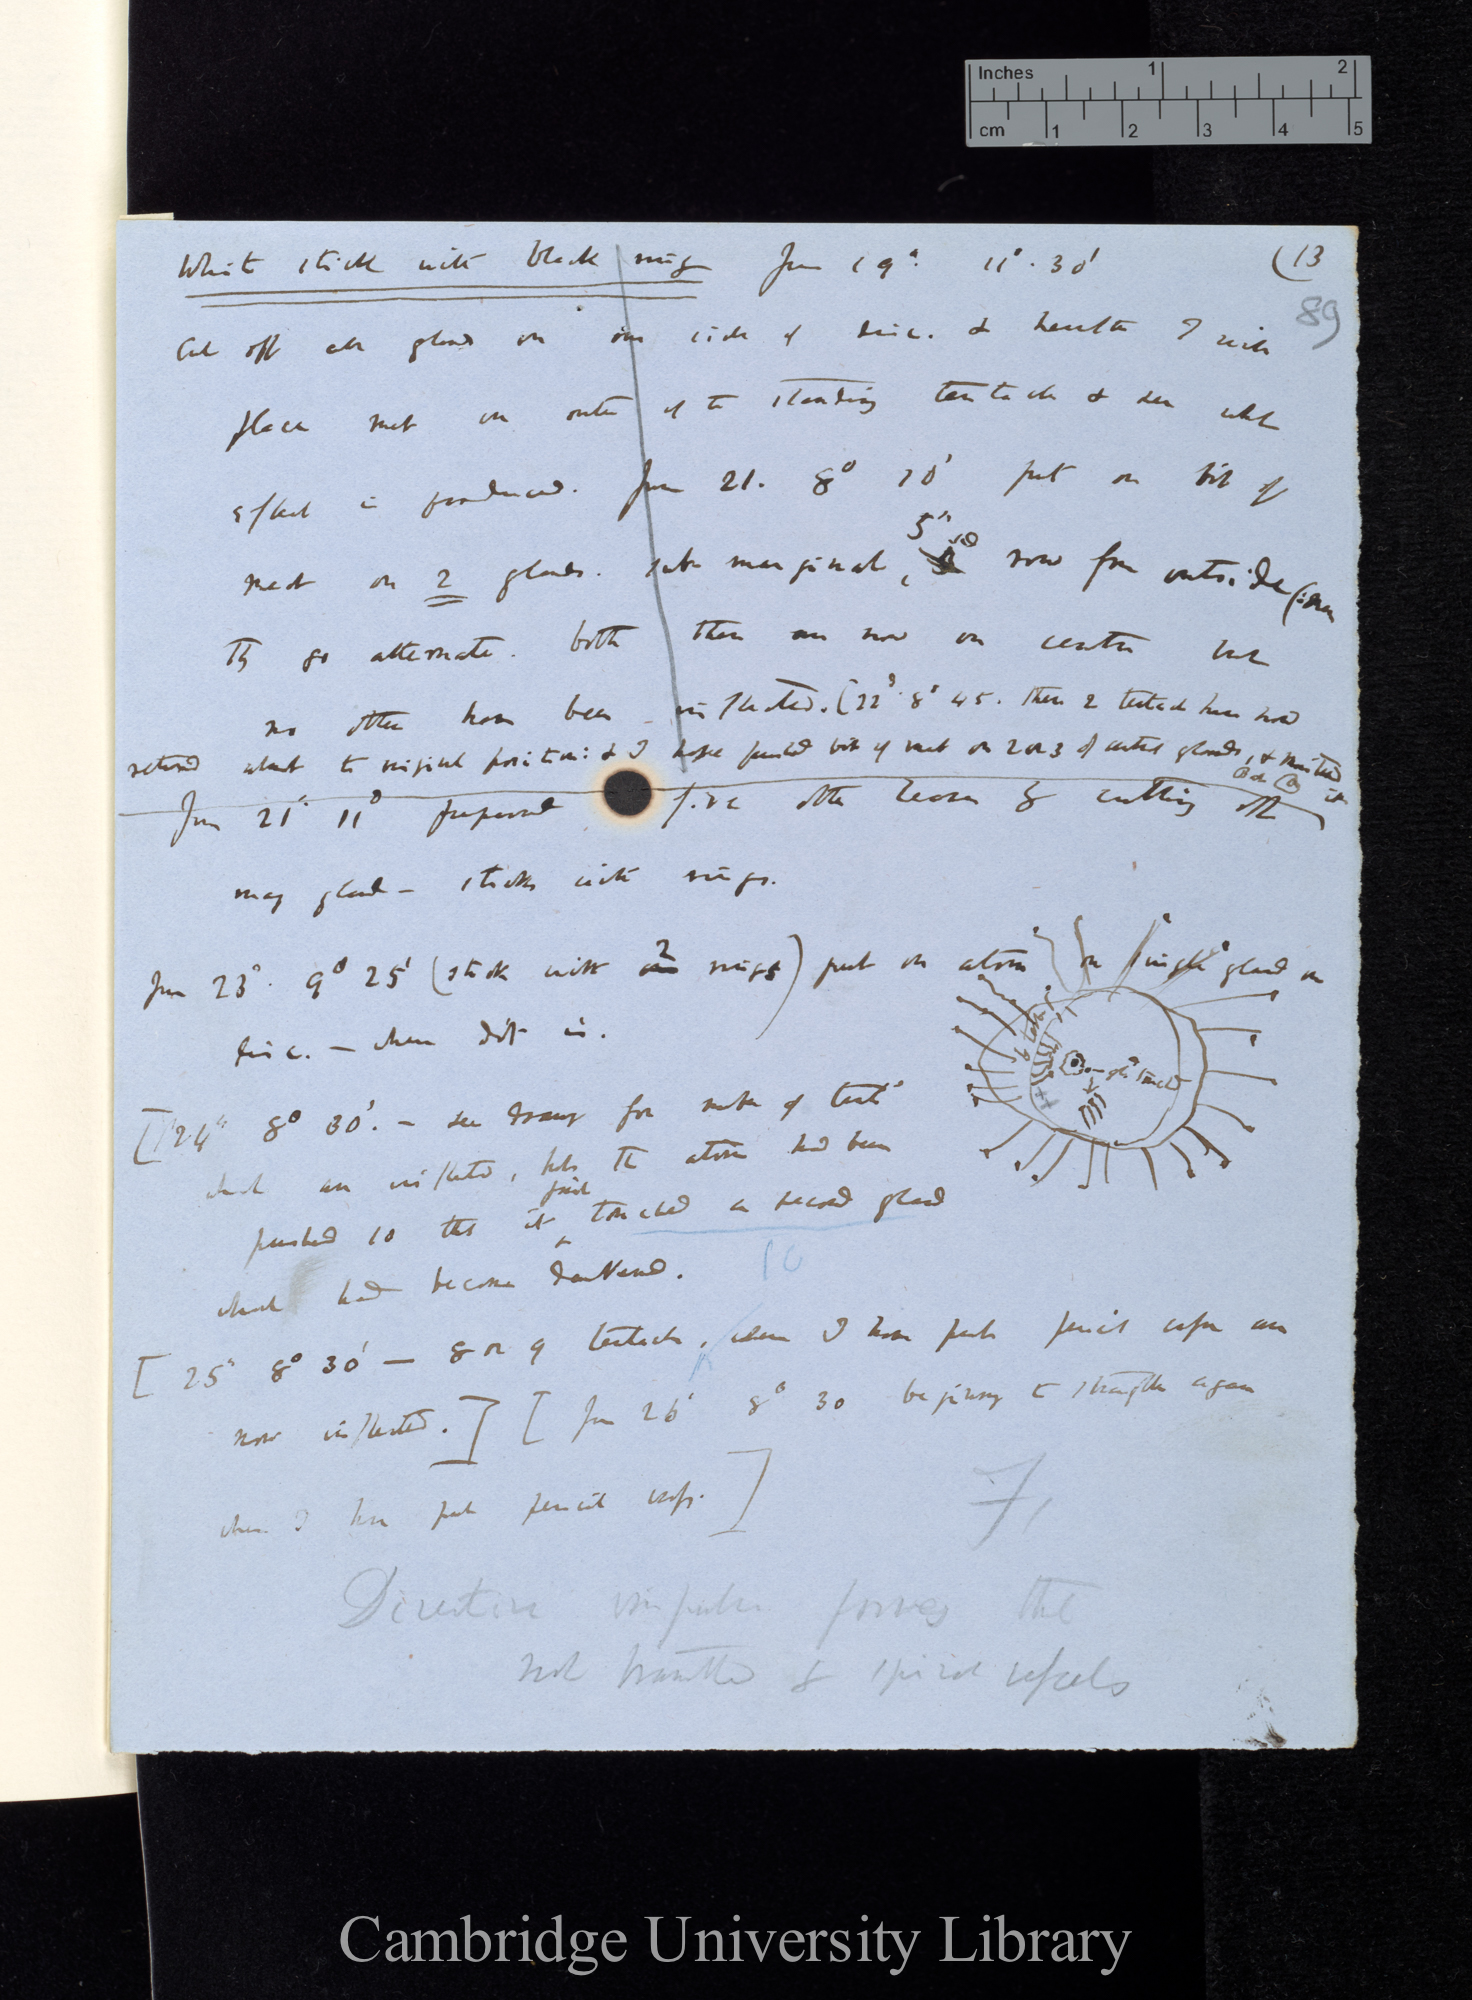 Inches 1 2
cm 1 2 3 4 5
White stick with black ring June 19th. 11° .30' (13
89
Cut off all glands on one side of disc. & hereafter I will
place meat on outer of the standing tentacle & see what
effect is produced. June 21. 8° 10' put on bit of
meat on 2 glands. sub marginal, 3rd row from outside
They go alternate. both these are now on centre but
no other have been inflected. [22d. 8° 45. These 2 tentacles have now
returned almost to original position: & I have placed bit of meat on 2 or 3 of central glands,
June 21st. 11° prepared five other leaves by cutting off
many glands — sticks with rings.
June 23d. 9° 25' (stick with 2 rings) put on atom on single gland on
disc. — where dot is.
[24th 8° 30'. — see drawing for number of tentacles
which are inflected, but the atom had been
pushed so that it just touched a second gland
which had become darkened.
[25th 8° 30' — 8 or 9 tentacles, where I have put pencil are
now inflected.] [June 26th 8° 30 beginning to straighten again
where I have put pencil ]
7,
Directive impulse proves the
not transmitted by spiral vessels
Cambridge University Library